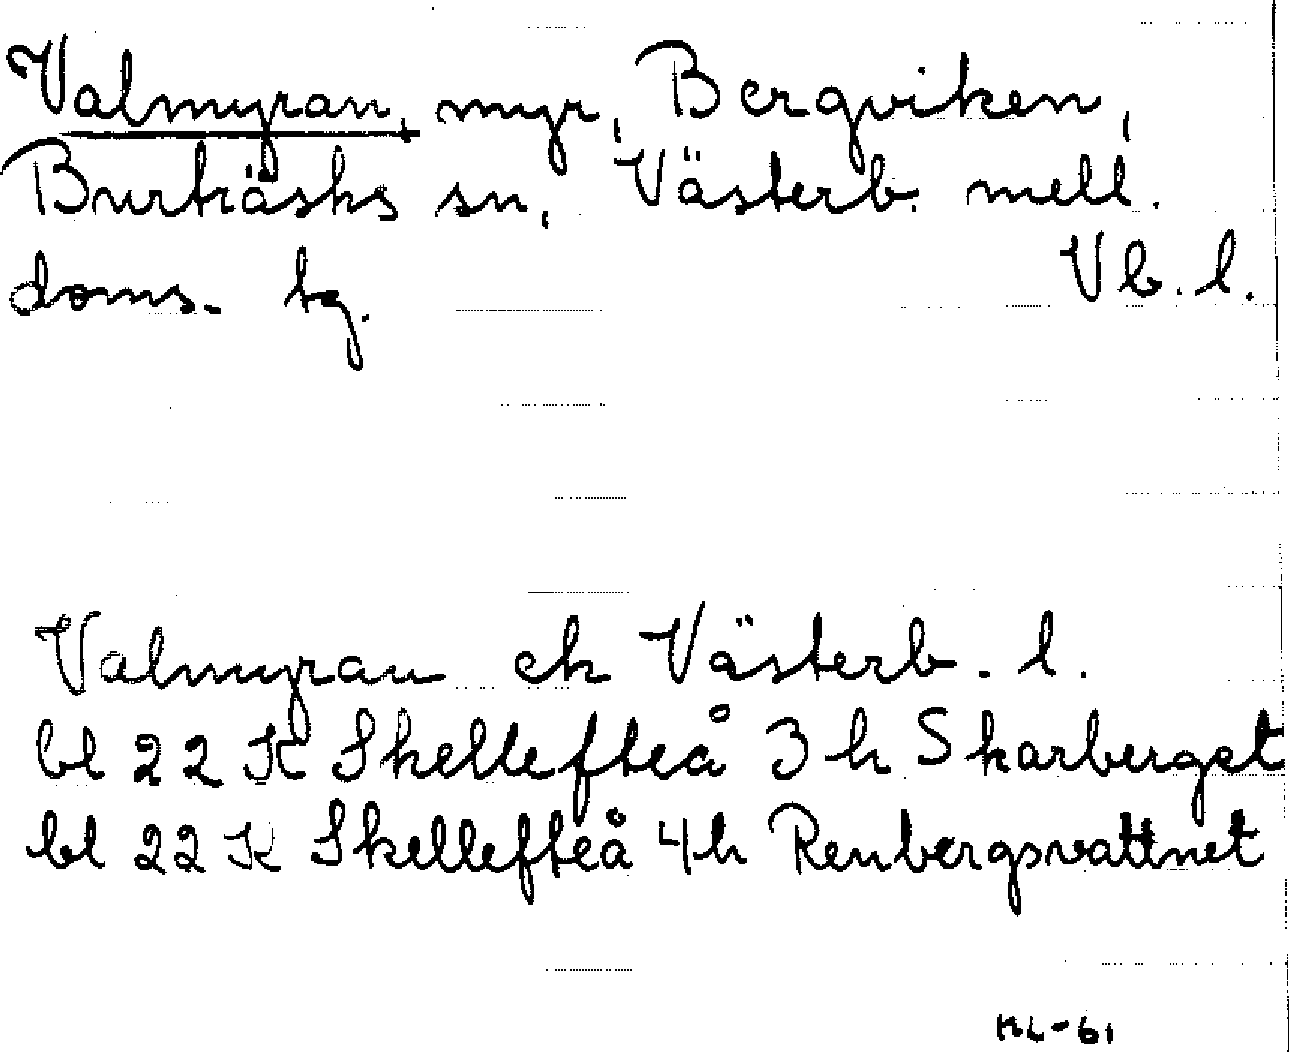 Valmyran, myr, Bergviken,
Burträsks sn, Västerb. mell.
doms. tg. Vb. l.
Valmyran ek Västerb. l.
bl 22 K Skellefteå 3 h Skarberget
bl 22 K Skellefteå 4 h Renbergsvattnet
ML-61